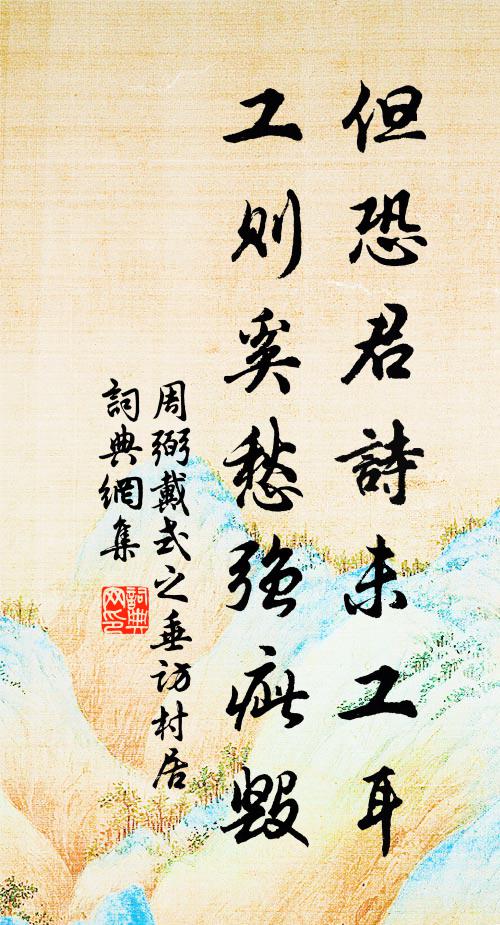 但恐君詩未工耳
工則奚愁強疵毀
周弼戴式之垂訪村居
詞典網集
詞典网印